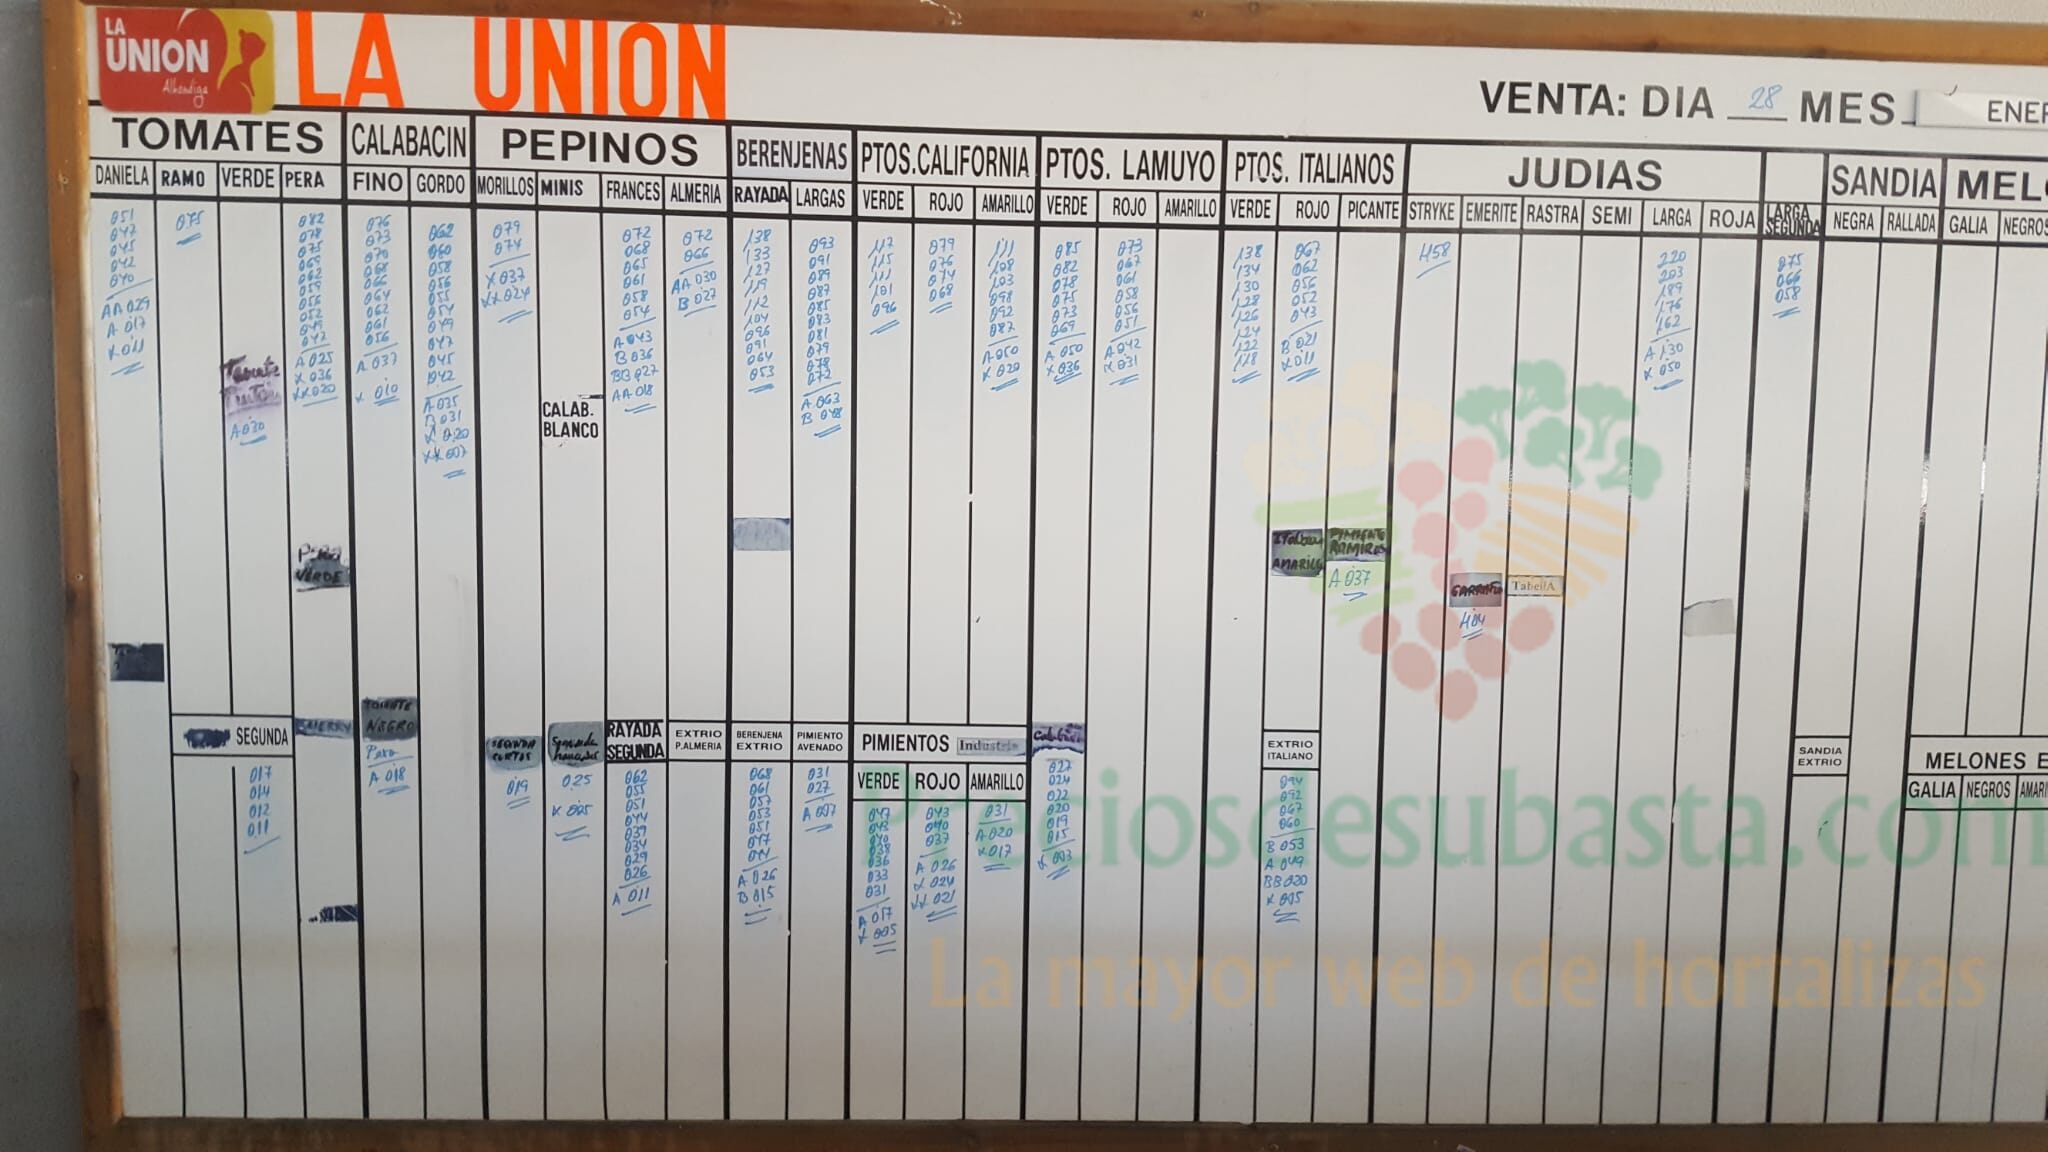 LA UNION Alhondiga
LA UNION
VENTA: DIA 28 MES ENER
TOMATES CALABACIN PEPINOS BERENJENAS PTOS.CALIFORNIA PTOS. LAMUYO PTOS. ITALIANOS JUDIAS SANDIA MELO
DANIELA RAMO VERDE PERA FINO GORDO MORILLOS MINIS FRANCES ALMERIA RAYADA LARGAS VERDE ROJO AMARILLO VERDE ROJO AMARILLO VERDE ROJO PICANTE STRYKE EMERITE RASTRA SEMI LARGA ROJA LARGA SEGUNDA NEGRA RALLADA GALIA NEGROS
051
047
045
042
040
AA 029
A 017
X 011
075
A 030
082
078
075
069
062
059
056
052
049
047
A 025
X 036
XX 020
PERA
VERDE
076
073
070
068
066
064
062
061
056
A 037
X 010
062
060
058
056
055
054
049
047
045
042
A 035
B 031
X 020
XX 007
079
074
X 037
XX 024
CALAB.
BLANCO
072
068
065
061
058
054
A 043
B 036
BB 027
AA 018
072
066
AA 030
B 027
138
133
127
119
112
104
096
091
064
053
093
091
089
087
085
083
081
079
078
072
A 063
B 048
117
115
111
101
096
079
076
074
068
111
108
103
098
092
087
A 050
X 020
085
082
078
075
073
069
A 050
X 036
073
067
061
058
056
051
A 042
X 031
138
134
130
128
126
124
122
118
067
062
056
052
043
B 021
X 011
AMARILLO
PIMIENTO
RAMIRO
A 037
458
GARRAFO
TabellA
404
220
203
189
176
162
A 130
X 050
075
066
058
SEGUNDA
017
014
012
011
CHERRY
TOMATE
NEGRO
Pera
A 018
SEGUNDA
CORTOS
019
Segunda
025
X 005
RAYADA
SEGUNDA
062
055
051
044
039
034
029
026
A 011
EXTRIO
P.ALMERIA
BERENJENA
EXTRIO
068
061
057
053
051
047
044
A 026
B 015
PIMIENTO
AVENADO
031
027
A 007
PIMIENTOS Industria
VERDE ROJO AMARILLO
047
043
040
038
036
033
031
A 017
X 005
043
040
037
A 026
X 024
XX 021
031
A 020
X 017
027
024
022
020
019
015
X 003
EXTRIO
ITALIANO
094
092
067
060
B 053
A 049
BB 020
X 005
SANDIA
EXTRIO
MELONES E
GALIA NEGROS AMARI
Preciosdesubasta.com
La mayor web de hortalizas